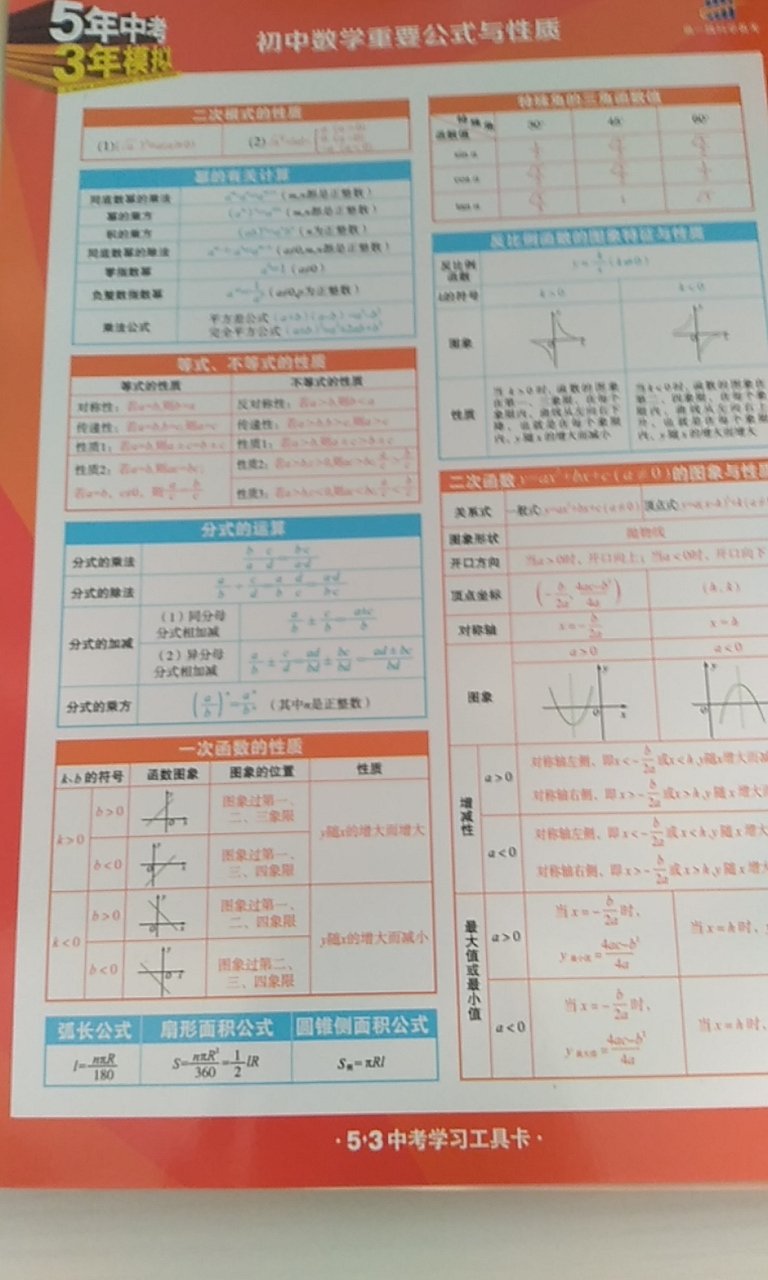 5年中考
3年模拟
初中数学重要公式与性质
二次根式的性质
(1)
(2)
幂的有关计算
同底数幂的乘法 (m,n都是正整数)
幂的乘方 (m,n都是正整数)
积的乘方 (n为正整数)
同底数幂的除法 (a≠0,m,n都是正整数)
零指数幂 (a≠0)
负整数指数幂 (a≠0,p为正整数)
乘法公式
平方差公式(a+b)(a-b)=a²-b²
完全平方公式(a±b)²=a²±2ab+b²
等式、不等式的性质
等式的性质 不等式的性质
对称性:若a=b,则b=a 反对称性:若a>b,则b<a
传递性:若a=b,b=c,则a=c 传递性:若a>b,b>c,则a>c
性质1:若a=b,则a±c=b±c 性质1:若a>b,则a±c>b±c
性质2:若a=b,则ac=bc; 性质2:若a>b,c>0,则ac>bc,a/c>b/c
若a=b,c≠0,则a/c=b/c 性质3:若a>b,c<0,则ac<bc,a/c<b/c
分式的运算
分式的乘法 b/a·c/d=bc/ad
分式的除法 a/b÷c/d=a/b·d/c=ad/bc
分式的加减
(1)同分母分式相加减 a/b±c/b=a±c/b
(2)异分母分式相加减 a/b±c/d=ad/bd±bc/bd=ad±bc/bd
分式的乘方 (a/b)ⁿ=aⁿ/bⁿ (其中n是正整数)
一次函数的性质
k、b的符号 函数图象 图象的位置 性质
k>0 b>0 图象过第一、二、三象限 y随x的增大而增大
b<0 图象过第一、三、四象限
k<0 b>0 图象过第一、二、四象限 y随x的增大而减小
b<0 图象过第二、三、四象限
弧长公式 扇形面积公式 圆锥侧面积公式
l=nπR/180 S=nπR²/360=1/2lR S侧=πRl
特殊角的三角函数值
特殊角
函数值
30° 45° 60°
sin α
cos α
tan α
反比例函数的图象特征与性质
反比例函数 y=k/x(k≠0)
k的符号 k>0 k<0
图象
性质
当k>0时,函数的图象在第一、三象限,在每个象限内,曲线从左向右下降,也就是在每个象限内,y随x的增大而减小
当k<0时,函数的图象在第二、四象限,在每个象限内,曲线从左向右上升,也就是在每个象限内,y随x的增大而增大
二次函数y=ax²+bx+c(a≠0)的图象与性质
关系式 一般式y=ax²+bx+c(a≠0) 顶点式
图象形状 抛物线
开口方向 当a>0时,开口向上;当a<0时,开口向下
顶点坐标 (-b/2a, 4ac-b²/4a) (h,k)
对称轴 x=-b/2a x=h
图象 a>0 a<0
增减性
a>0
对称轴左侧,即x<-b/2a或x<h,y随x增大而减
对称轴右侧,即x>-b/2a或x>h,y随x增大而
a<0
对称轴左侧,即x<-b/2a或x<h,y随x增大
对称轴右侧,即x>-b/2a或x>h,y随x增大
最大值或最小值
a>0 当x=-b/2a时, 当x=h时,
y最小值=4ac-b²/4a
a<0 当x=-b/2a时, 当x=h时,
y最大值=4ac-b²/4a
·5·3中考学习工具卡·